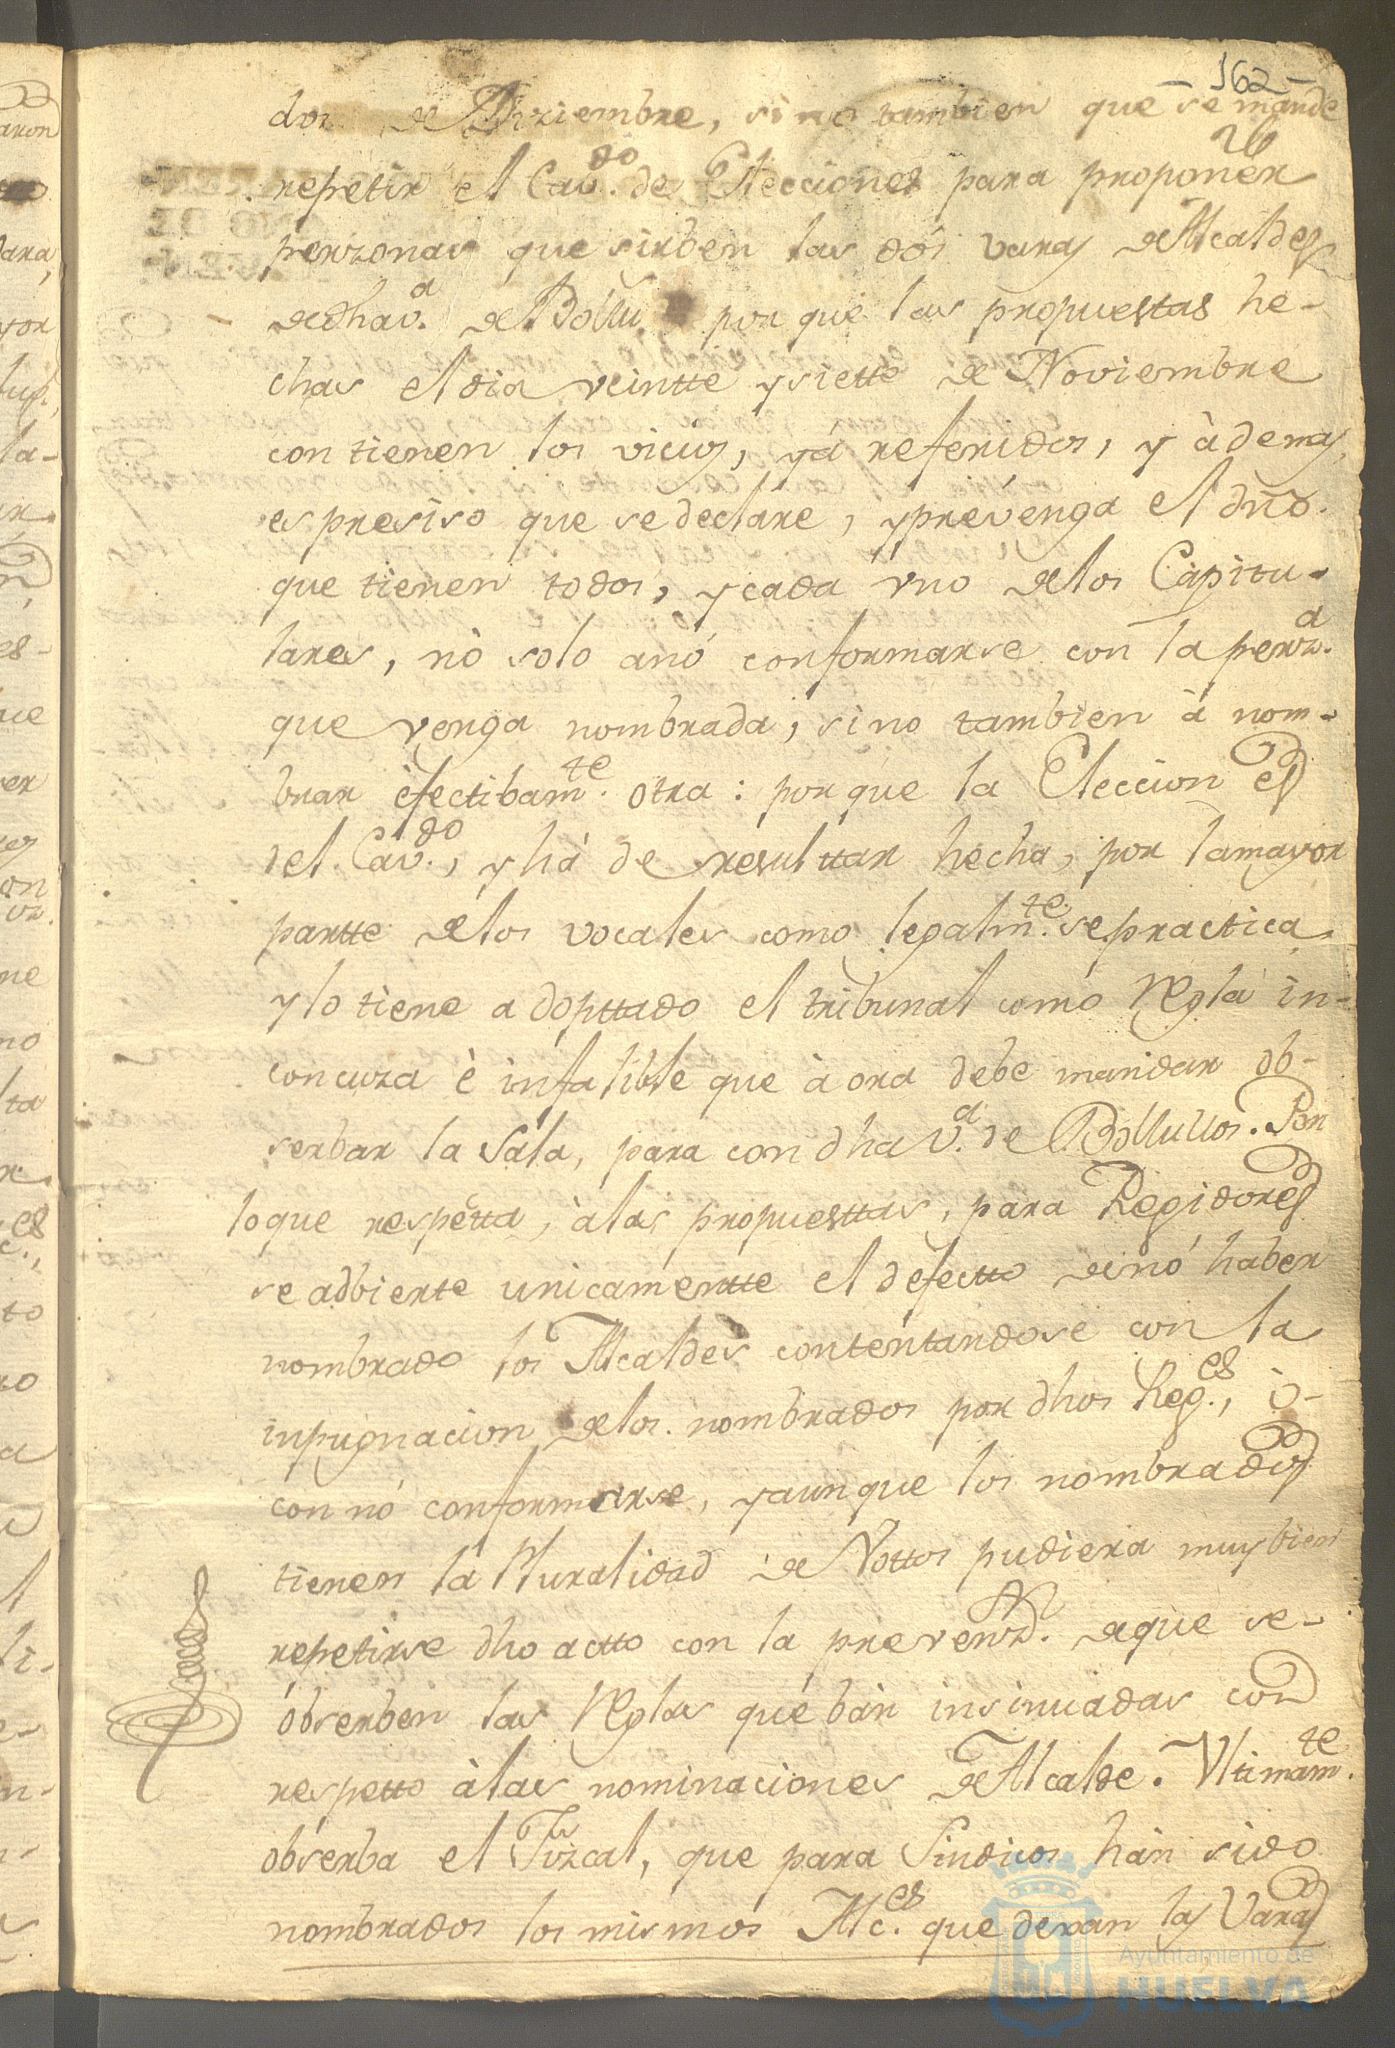 -162-
dos de Diziembre, sino tambien que se mande
repetir el Cav.do de Elecciones para proponer
perzonas que sirben las dós varas de Alcaldes
de dha v.a de Bollu por que las propuestas he-
chas el dia veintte y siette de Noviembre
contienen los vicios, yá referidos, y àdemas,
es presiso que se declare, y prevenga el dr̃o.
que tienen todos, y cada vno de los Capitu-
lares, nò solo anó conformarse con la perz.a
que venga nombrada, sino tambien à nom-
brar èfectibam.te otra: porque la Eleccion es
del Cav.do, y há de resulttar hecha, por la mayor
partte de los vocales como legalm.te se practica,
y lo tiene adopttado el tribunal como regla in-
concuza è infalible que àora debe mandar ob-
serbar la Sala, para con dha v.a de Bollullos. Por
lo que respètta, àlas propuesttas, para Regidores
se adbierte unicamentte el defectto de nó haber
nombrado los Alcaldes contentandose con la
inpugnacion de los nombrados por dhos Reg.es, ò-
con nó conformarse, y aunque los nombrados
tienen la Pluralidad de Vottos pudiera muy bien
repetirse dho actto con la prevenz.n de que se-
óbserben las reglas que bàn insinuadas con
respetto àlas nominaciones de Alcalde. Vltimam.te
obserba el Fizcal, que para Sindicos hán sido
nombrados los mismos Alc.es que dexan las Varas
Ayuntamiento de
HUELVA